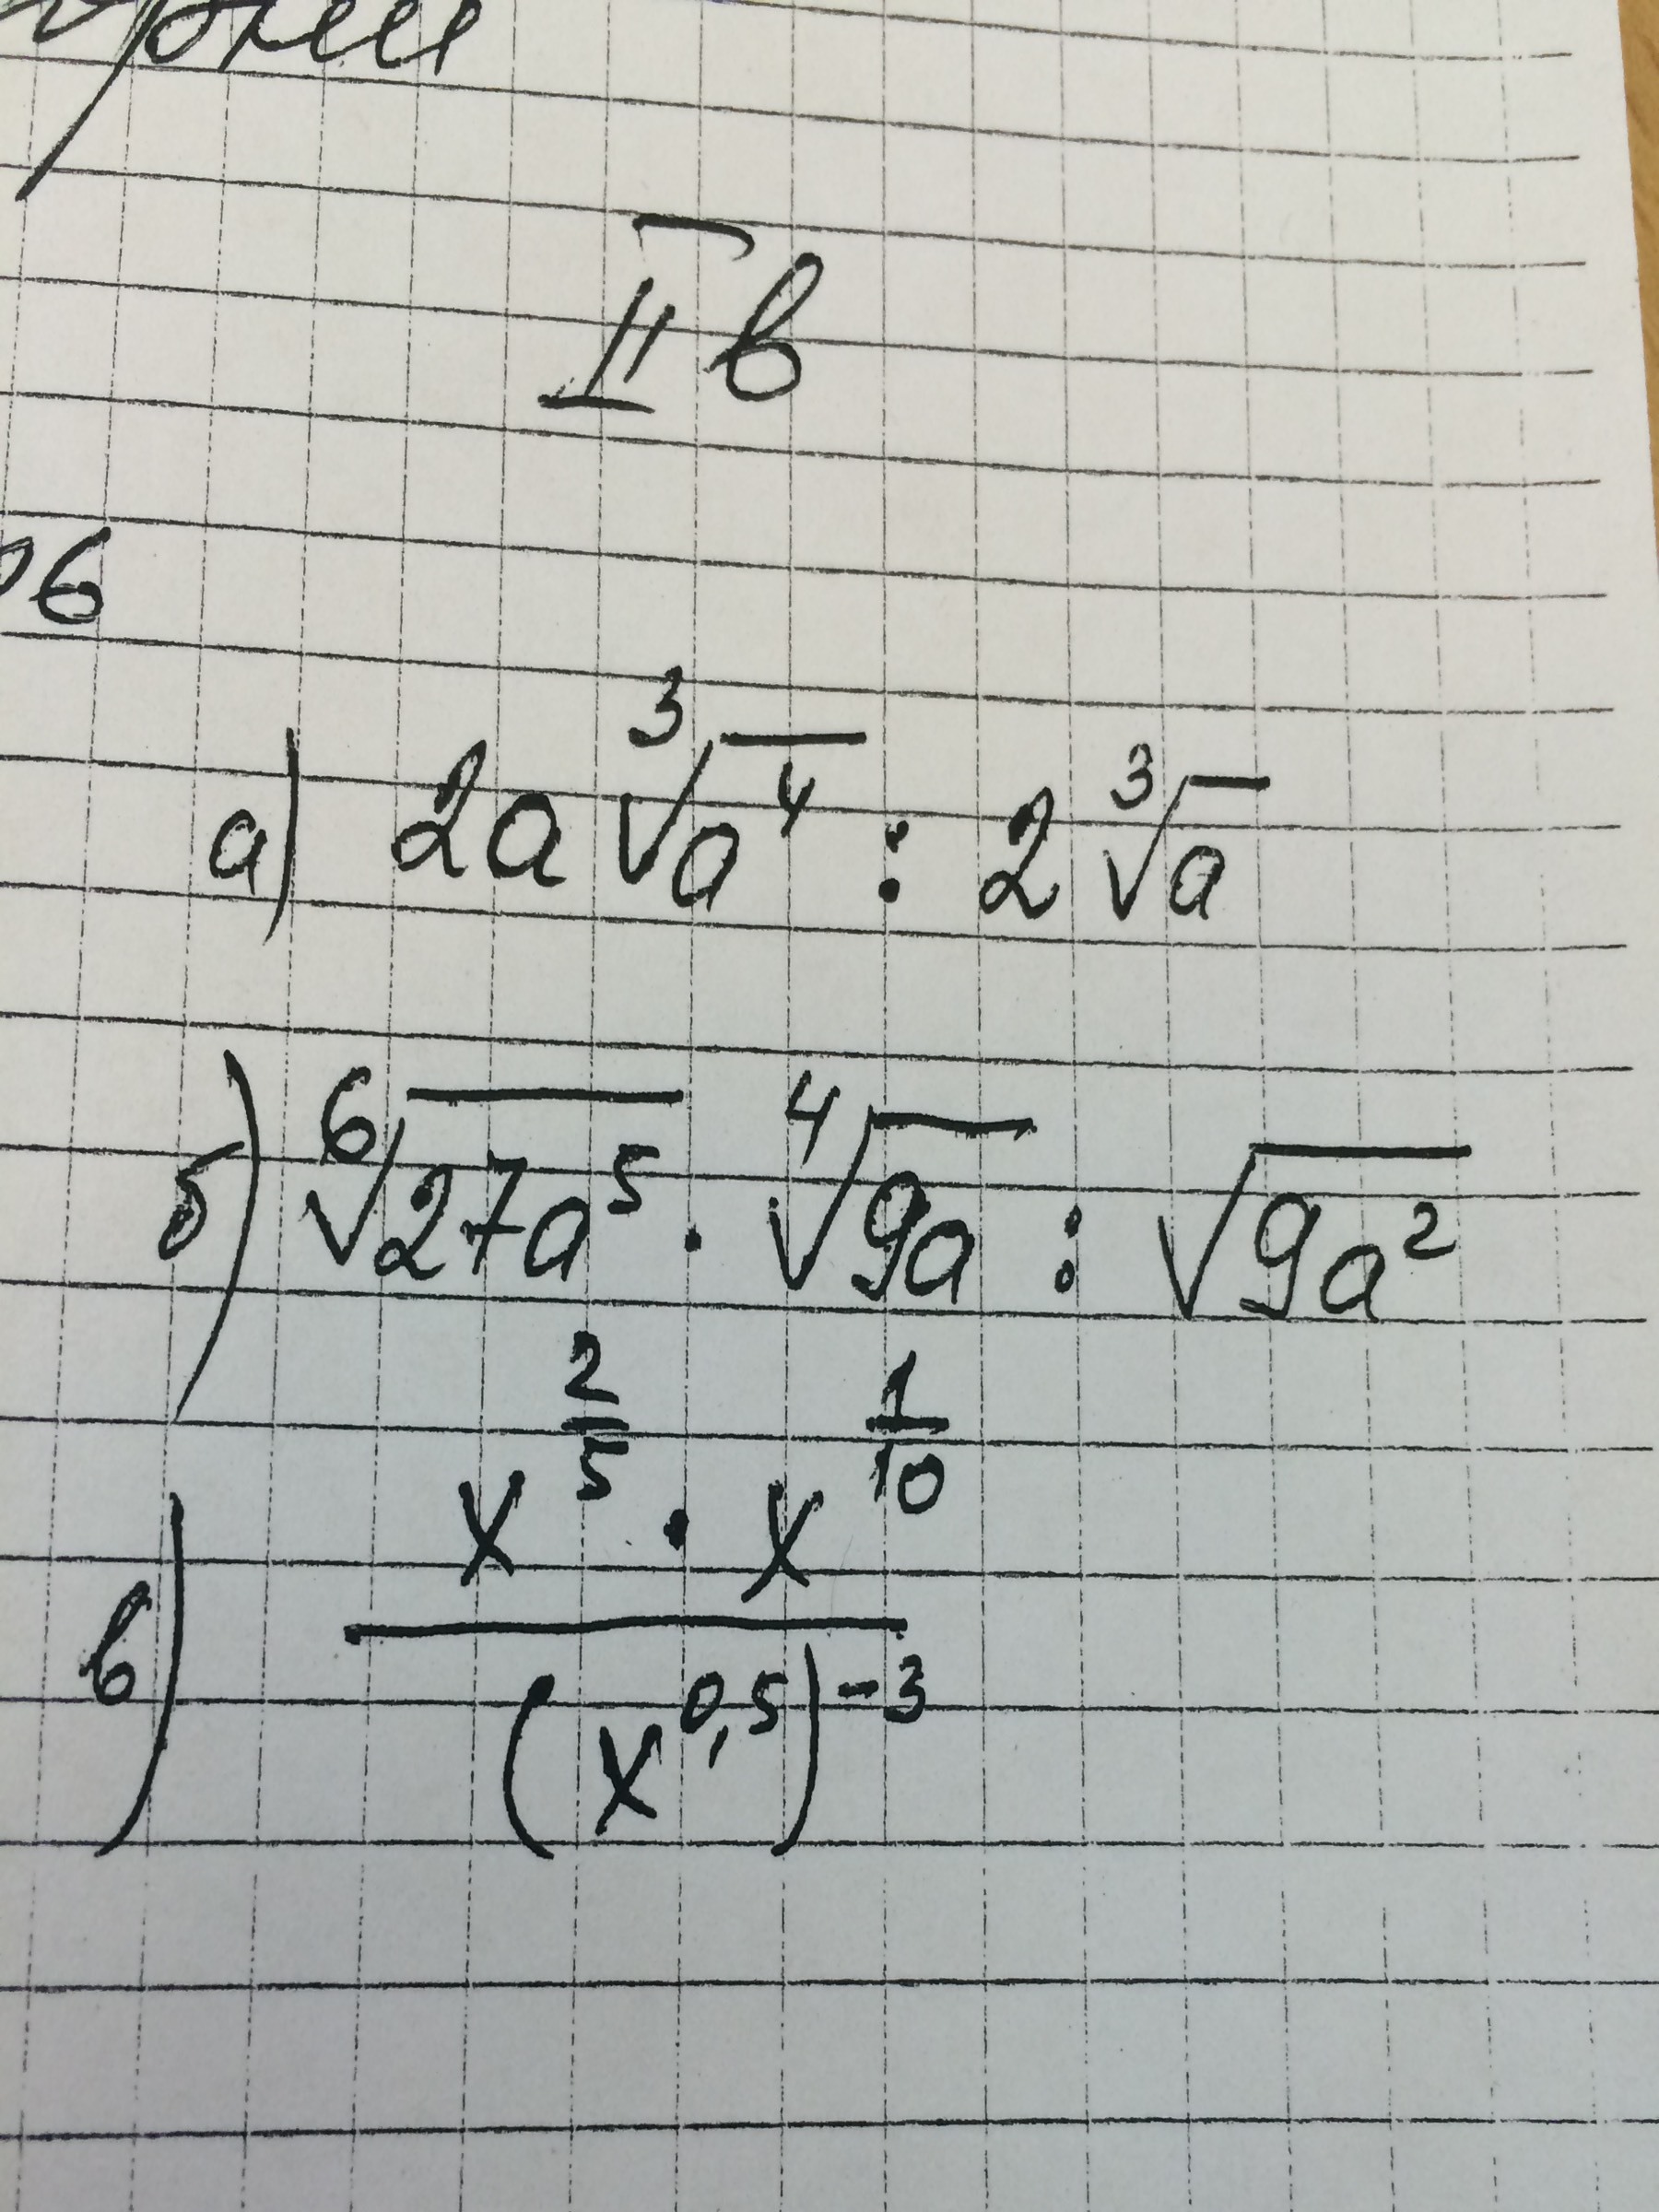 II в
06
а) 2a ∛a⁴ : 2 ∛a
б) ⁶√27a⁵ · ⁴√9a : √9a²
в) (x^(2/5) · x^(1/10)) / (x^0,5)^-3